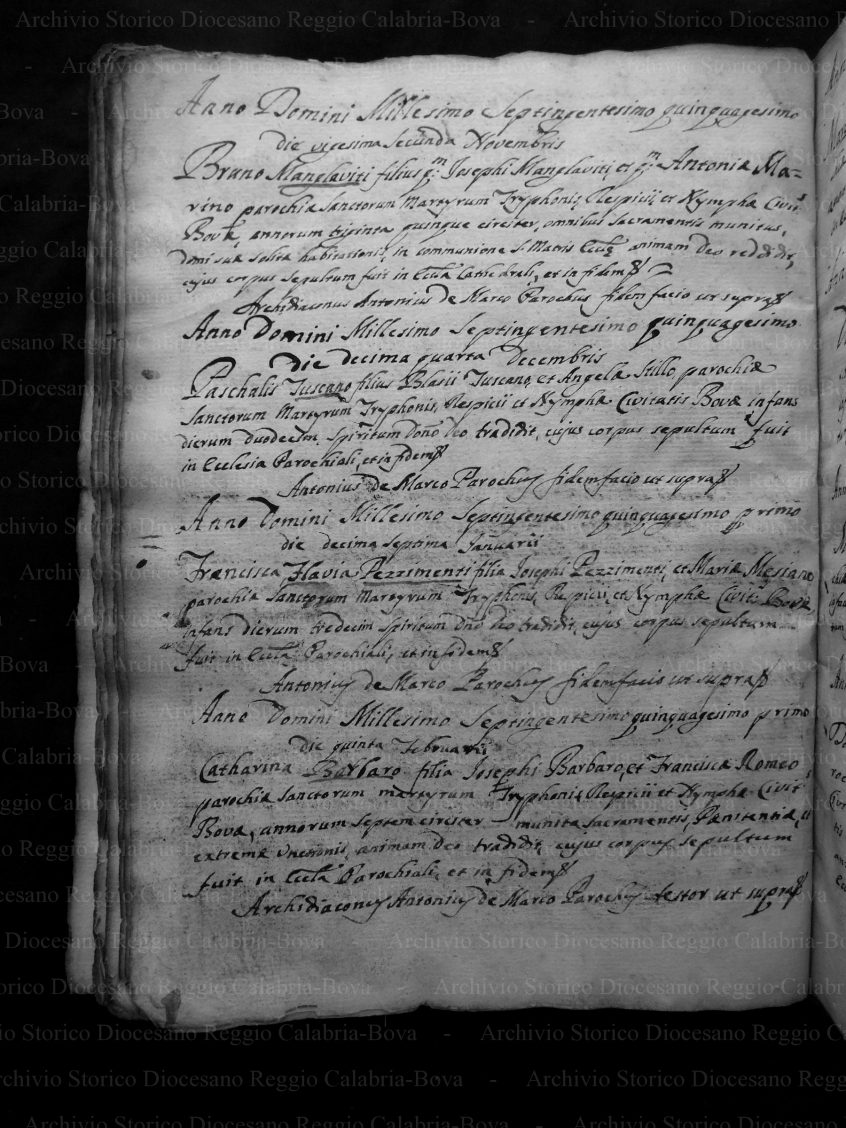 Anno Domini Millesimo Septingentesimo quinquagesimo
die vigesima secunda Novembris
Bruno Manglaviti filius qm Josephi Manglaviti, et qm Antoniæ Ma=
rino parochiæ Sanctorum Martyrum Tryphonis, Respicii, et Nymphæ Civits
Bovæ, annorum triginta quinque circiter, omnibus Sacramentis munitus,
domi suæ solitæ habitationis, in communione S. Matris Ecclæ animam Deo reddidit,
cujus corpus sepultum fuit in Eccla Cathedrali, et in fidem
Archidiaconus Antonius de Marco Parochus fidem facio ut supra
Anno Domini Millesimo Septingentesimo quinquagesimo
Die decima quarta Decembris
Paschalis Tuscano filius Blasii Tuscano, et Angelæ Stillo parochiæ
Sanctorum Martyrum Tryphonis, Respicii et Nymphæ Civitatis Bovæ infans
dierum duodecim, Spiritum Dno Deo tradidit, cujus corpus sepultum fuit
in Ecclesia Parochiali, et in fidem
Antonius de Marco Parochus fidem facio ut supra
Anno Domini Millesimo Septingentesimo quinquagesimo primo
die decima septima Januarii
Francisca Flavia Pezzimenti filia Josephi Pezzimenti, et Mariæ Mesiano
parochiæ Sanctorum Martyrum Tryphonis, Respicii, et Nymphæ Civits Bovæ,
infans dierum tredecim Spiritum Dno Deo tradidit, cujus corpus sepultum
fuit in Eccla Parochiali, et in fidem
Antonius de Marco Parochus fidem facio ut supra
Anno Domini Millesimo Septingentesimo quinquagesimo primo
die quinta Februarii
Catharina Barbaro filia Josephi Barbaro, et Franciscæ Romeo
parochiæ Sanctorum martyrum Tryphonis, Respicii et Nymphæ Civits
Bovæ, annorum septem circiter munita Sacramentis, Pænitentiæ, et
extremæ Unctionis, animam Deo tradidit, cujus corpus sepultum
fuit in Eccla Parochiali, et in fidem
Archidiaconus Antonius de Marco Parochus testor ut supra